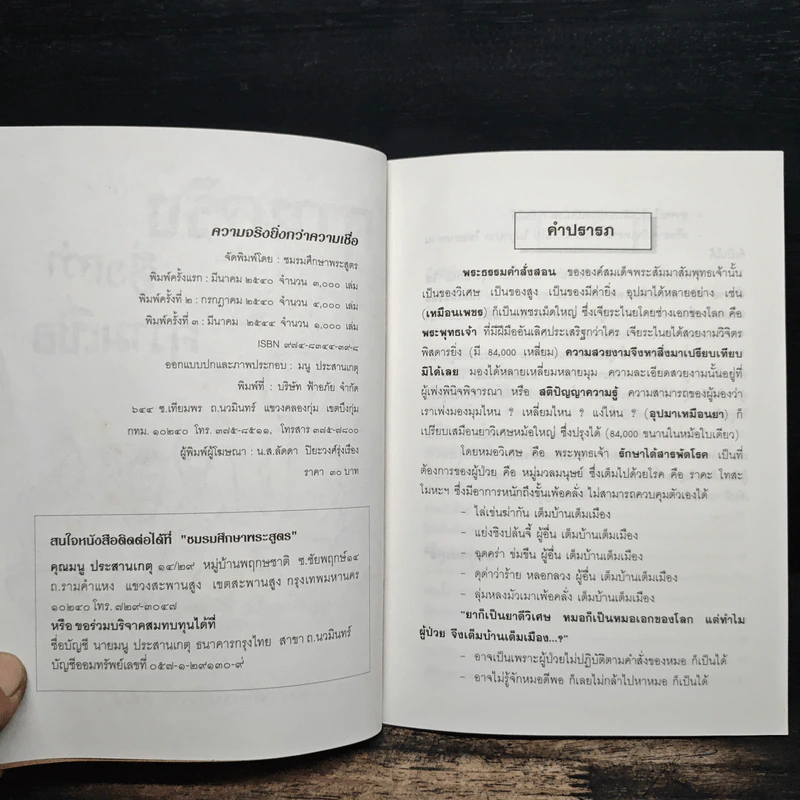 ความจริงยิ่งกว่าความเชื่อ
จัดพิมพ์โดย : ชมรมศึกษาพระสูตร
พิมพ์ครั้งแรก : มีนาคม ๒๕๔๐ จำนวน ๓,๐๐๐ เล่ม
พิมพ์ครั้งที่ ๒ : กรกฎาคม ๒๕๔๐ จำนวน ๔,๐๐๐ เล่ม
พิมพ์ครั้งที่ ๓ : มีนาคม ๒๕๔๔ จำนวน ๑,๐๐๐ เล่ม
ISBN ๙๗๔-๘๓๔๔-๓๙-๘
ออกแบบปกและภาพประกอบ : มนู ประสานเกตุ
พิมพ์ที่ : บริษัท ฟ้าอภัย จำกัด
๖๔๔ ซ.เทียมพร ถ.นวมินทร์ แขวงคลองกุ่ม เขตบึงกุ่ม
กทม. ๑๐๒๔๐ โทร. ๓๗๕-๘๕๑๑, โทรสาร ๓๗๕-๗๘๐๐
ผู้พิมพ์ผู้โฆษณา : น.ส.ลัดดา ปิยะวงศ์รุ่งเรือง
ราคา ๓๐ บาท
สนใจหนังสือติดต่อได้ที่ "ชมรมศึกษาพระสูตร"
คุณมนู ประสานเกตุ ๑๔/๒๙ หมู่บ้านพฤกษชาติ ซ.ชัยพฤกษ์๑๔
ถ.รามคำแหง แขวงสะพานสูง เขตสะพานสูง กรุงเทพมหานคร
๑๐๒๔๐ โทร. ๗๒๙-๓๐๔๗
หรือ ขอร่วมบริจาคสมทบทุนได้ที่
ชื่อบัญชี นายมนู ประสานเกตุ ธนาคารกรุงไทย สาขา ถ.นวมินทร์
บัญชีออมทรัพย์เลขที่ ๐๕๗-๑-๒๙๑๓๐-๙
คำปรารภ
พระธรรมคำสั่งสอน ขององค์สมเด็จพระสัมมาสัมพุทธเจ้านั้น
เป็นของวิเศษ เป็นของสูง เป็นของมีค่ายิ่ง อุปมาได้หลายอย่าง เช่น
(เหมือนเพชร) ก็เป็นเพชรเม็ดใหญ่ ซึ่งเจียระไนโดยช่างเอกของโลก คือ
พระพุทธเจ้า ที่มีฝีมืออันเลิศประเสริฐกว่าใคร เจียระไนได้สวยงามวิจิตร
พิสดารยิ่ง (มี 84,000 เหลี่ยม) ความสวยงามจึงหาสิ่งมาเปรียบเทียบ
มิได้เลย มองได้หลายเหลี่ยมหลายมุม ความละเอียดสวยงามนั้นอยู่ที่
ผู้เพ่งพินิจพิจารณา หรือ สติปัญญาความรู้ ความสามารถของผู้มองว่า
เราเพ่งมองมุมไหน ? เหลี่ยมไหน ? แง่ไหน ? (อุปมาเหมือนยา) ก็
เปรียบเสมือนยาวิเศษหม้อใหญ่ ซึ่งปรุงได้ (84,000 ขนานในหม้อใบเดียว)
โดยหมอวิเศษ คือ พระพุทธเจ้า รักษาได้สารพัดโรค เป็นที่
ต้องการของผู้ป่วย คือ หมู่มวลมนุษย์ ซึ่งเต็มไปด้วยโรค คือ ราคะ โทสะ
โมหะฯ ซึ่งมีอาการหนักถึงขั้นเพ้อคลั่ง ไม่สามารถควบคุมตัวเองได้
- ไล่เข่นฆ่ากัน เต็มบ้านเต็มเมือง
- แย่งชิงปล้นจี้ ผู้อื่น เต็มบ้านเต็มเมือง
- ฉุดคร่า ข่มขืน ผู้อื่น เต็มบ้านเต็มเมือง
- ดุด่าว่าร้าย หลอกลวง ผู้อื่น เต็มบ้านเต็มเมือง
- ลุ่มหลงมัวเมาเพ้อคลั่ง เต็มบ้านเต็มเมือง
"ยาก็เป็นยาดีวิเศษ หมอก็เป็นหมอเอกของโลก แต่ทำไม
ผู้ป่วย จึงเต็มบ้านเต็มเมือง...?"
- อาจเป็นเพราะผู้ป่วยไม่ปฏิบัติตามคำสั่งของหมอ ก็เป็นได้
- อาจไม่รู้จักหมอดีพอ ก็เลยไม่กล้าไปหาหมอ ก็เป็นได้